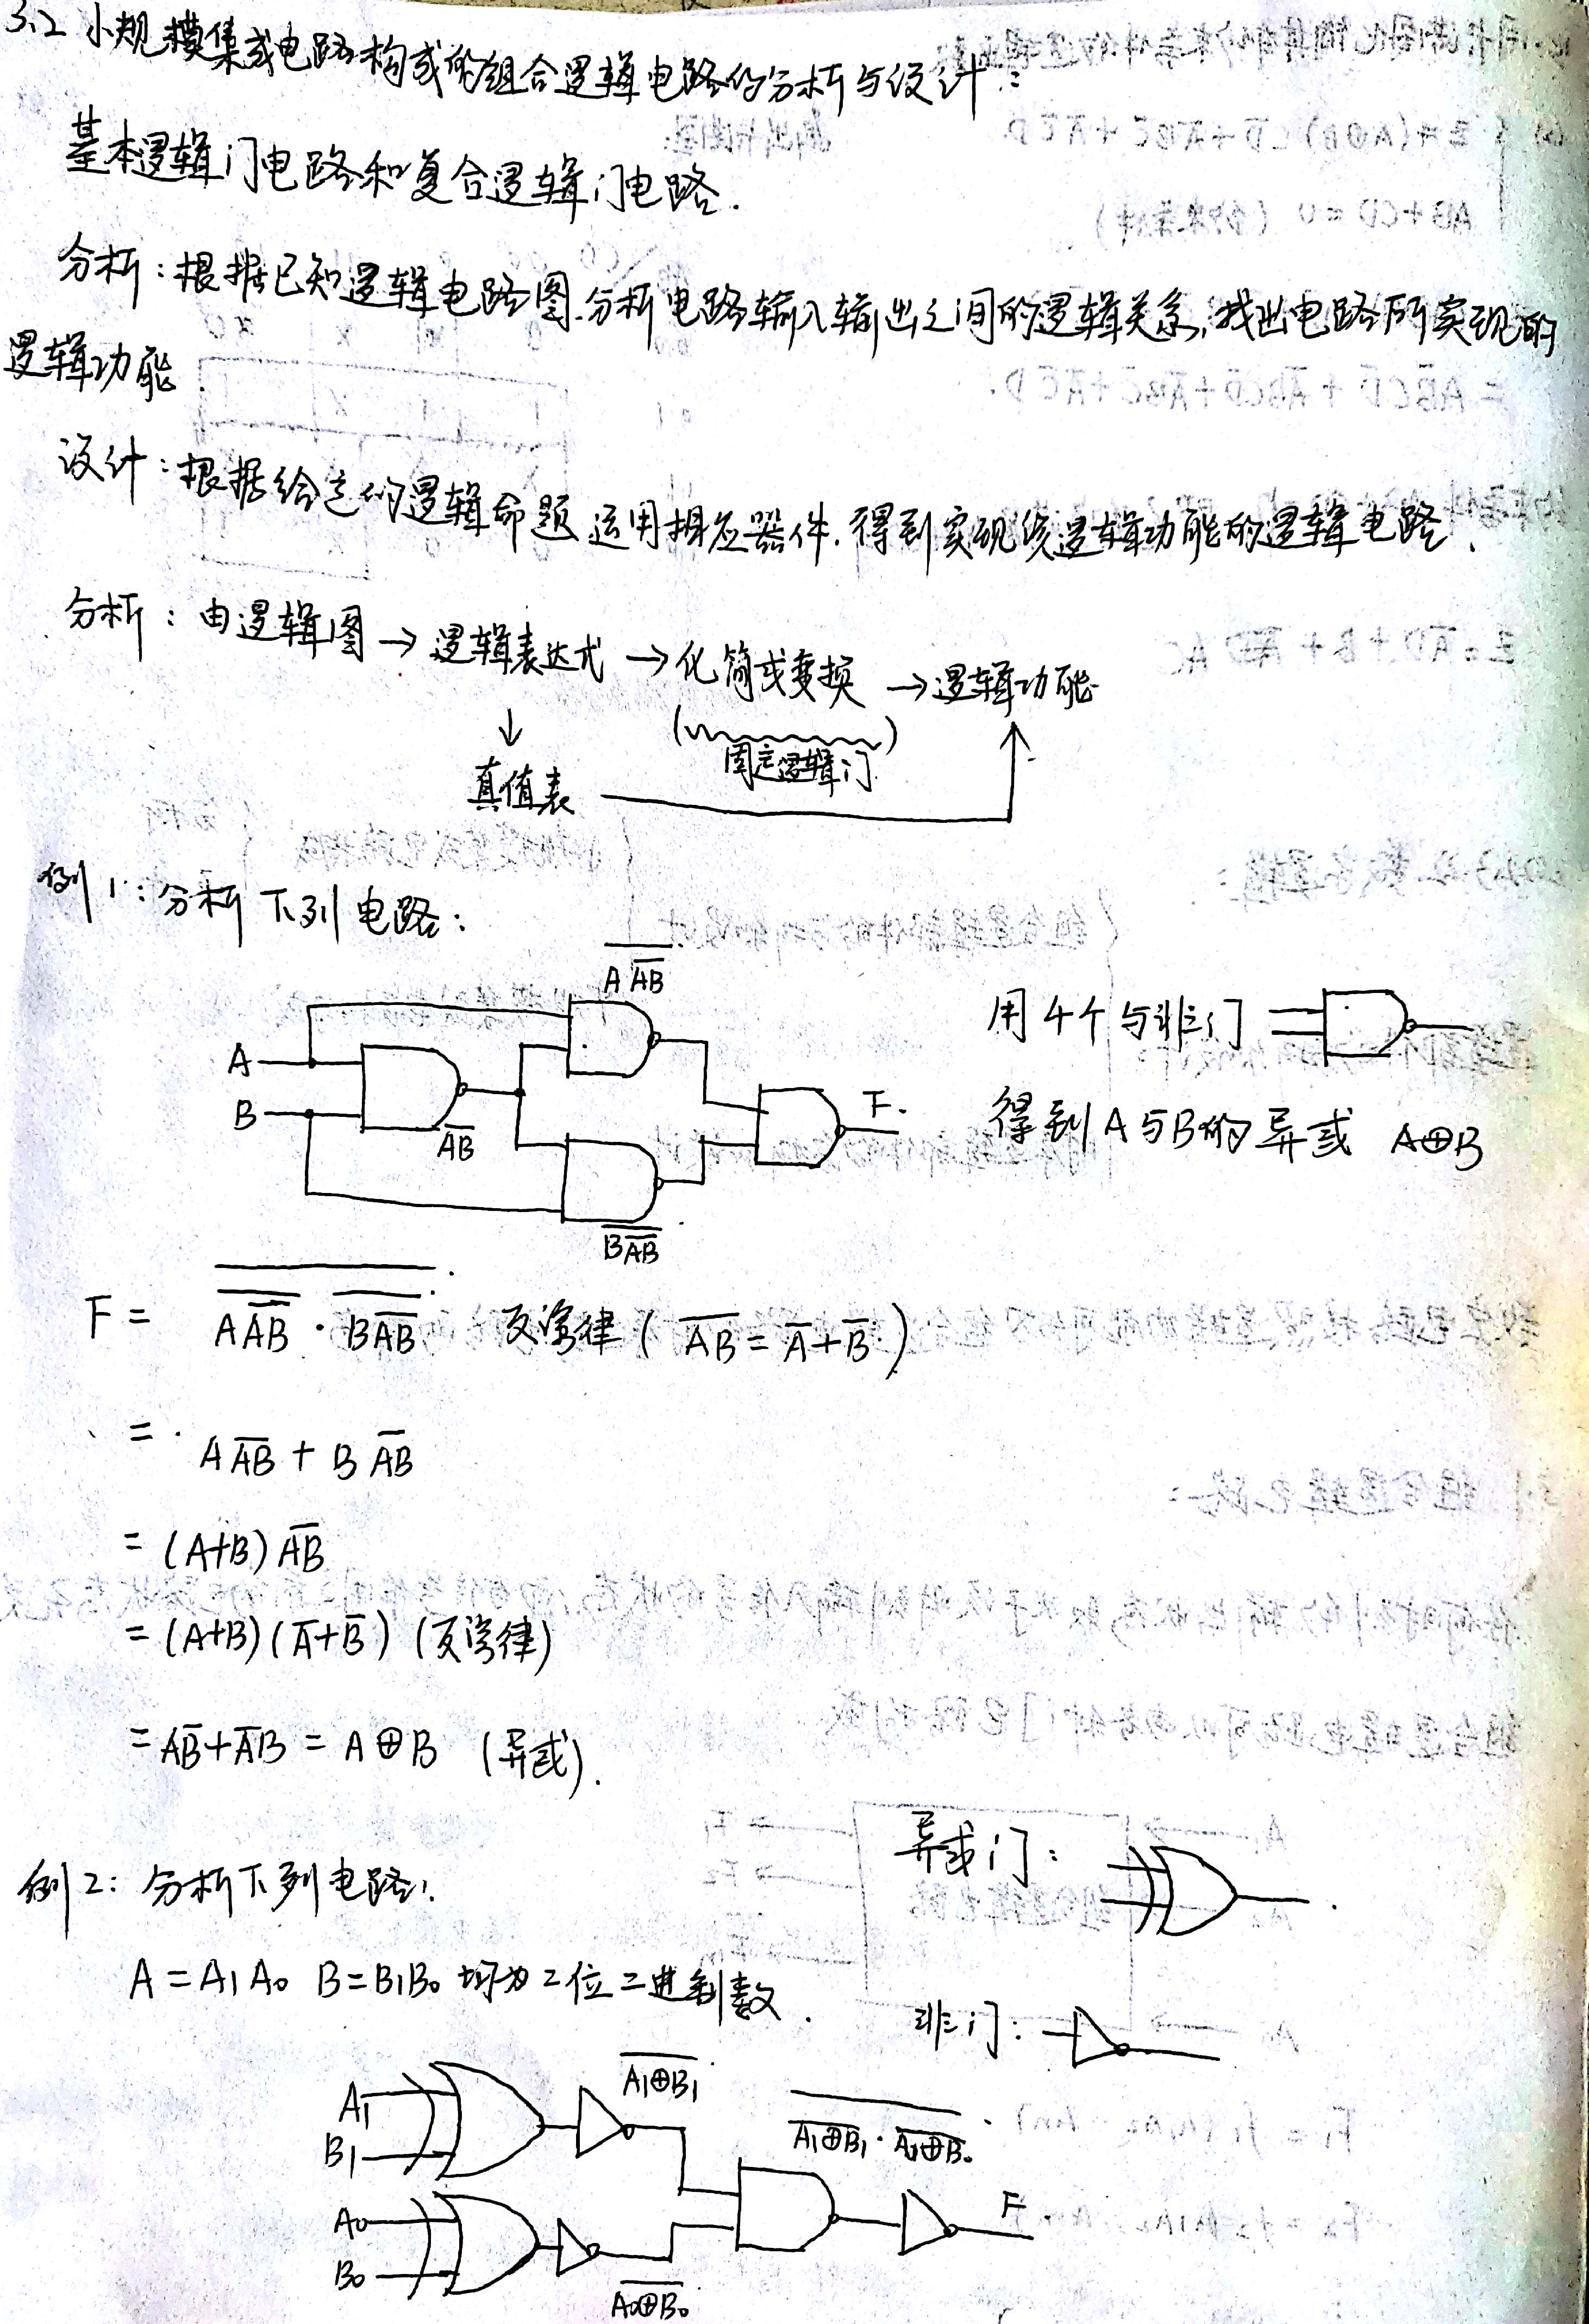 3.2 小规模集成电路构成的组合逻辑电路的分析与设计：
基本逻辑门电路和复合逻辑门电路.
分析：根据已知逻辑电路图.分析电路输入输出之间的逻辑关系,找出电路所实现的
逻辑功能.
设计：根据给定的逻辑命题 运用相应器件.得到实现该逻辑功能的逻辑电路.
分析：由逻辑图 → 逻辑表达式 → 化简或变换 → 逻辑功能
↓
(固定逻辑门)
真值表
例1：分析下列电路：
A A̅B̅
用4个与非门
A
B
A̅B̅
F.
得到A与B的异或 A⊕B
B A̅B̅
F = A A̅B̅ · B A̅B̅ 反演律 ( A̅B̅ = A̅+B̅ )
= A A̅B̅ + B A̅B̅
= (A+B) A̅B̅
= (A+B)(A̅+B̅) (反演律)
= AB̅+A̅B = A⊕B (异或).
异或门：
例2：分析下列电路.
A=A₁A₀ B=B₁B₀ 均为2位二进制数.
非门：
A₁⊕B₁
A₁
B₁
A₁⊕B₁ · A₀⊕B₀
A₀
B₀
F
A₀⊕B₀